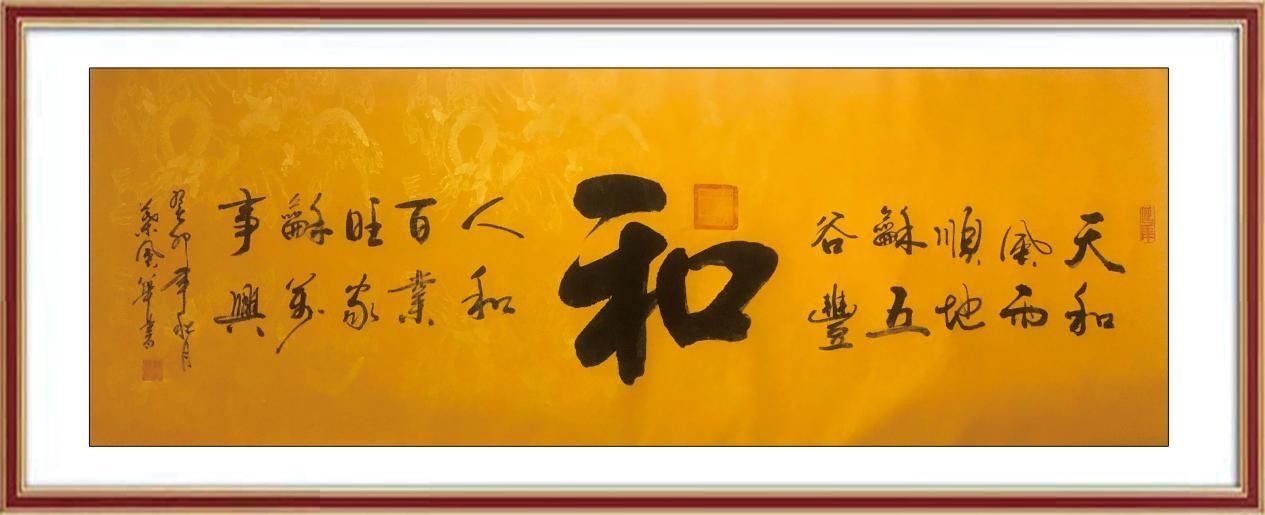 天和
風雨
順地
龢五
谷豐
和
人和
百業
旺家
龢萬
事興
癸卯年秋月
華書